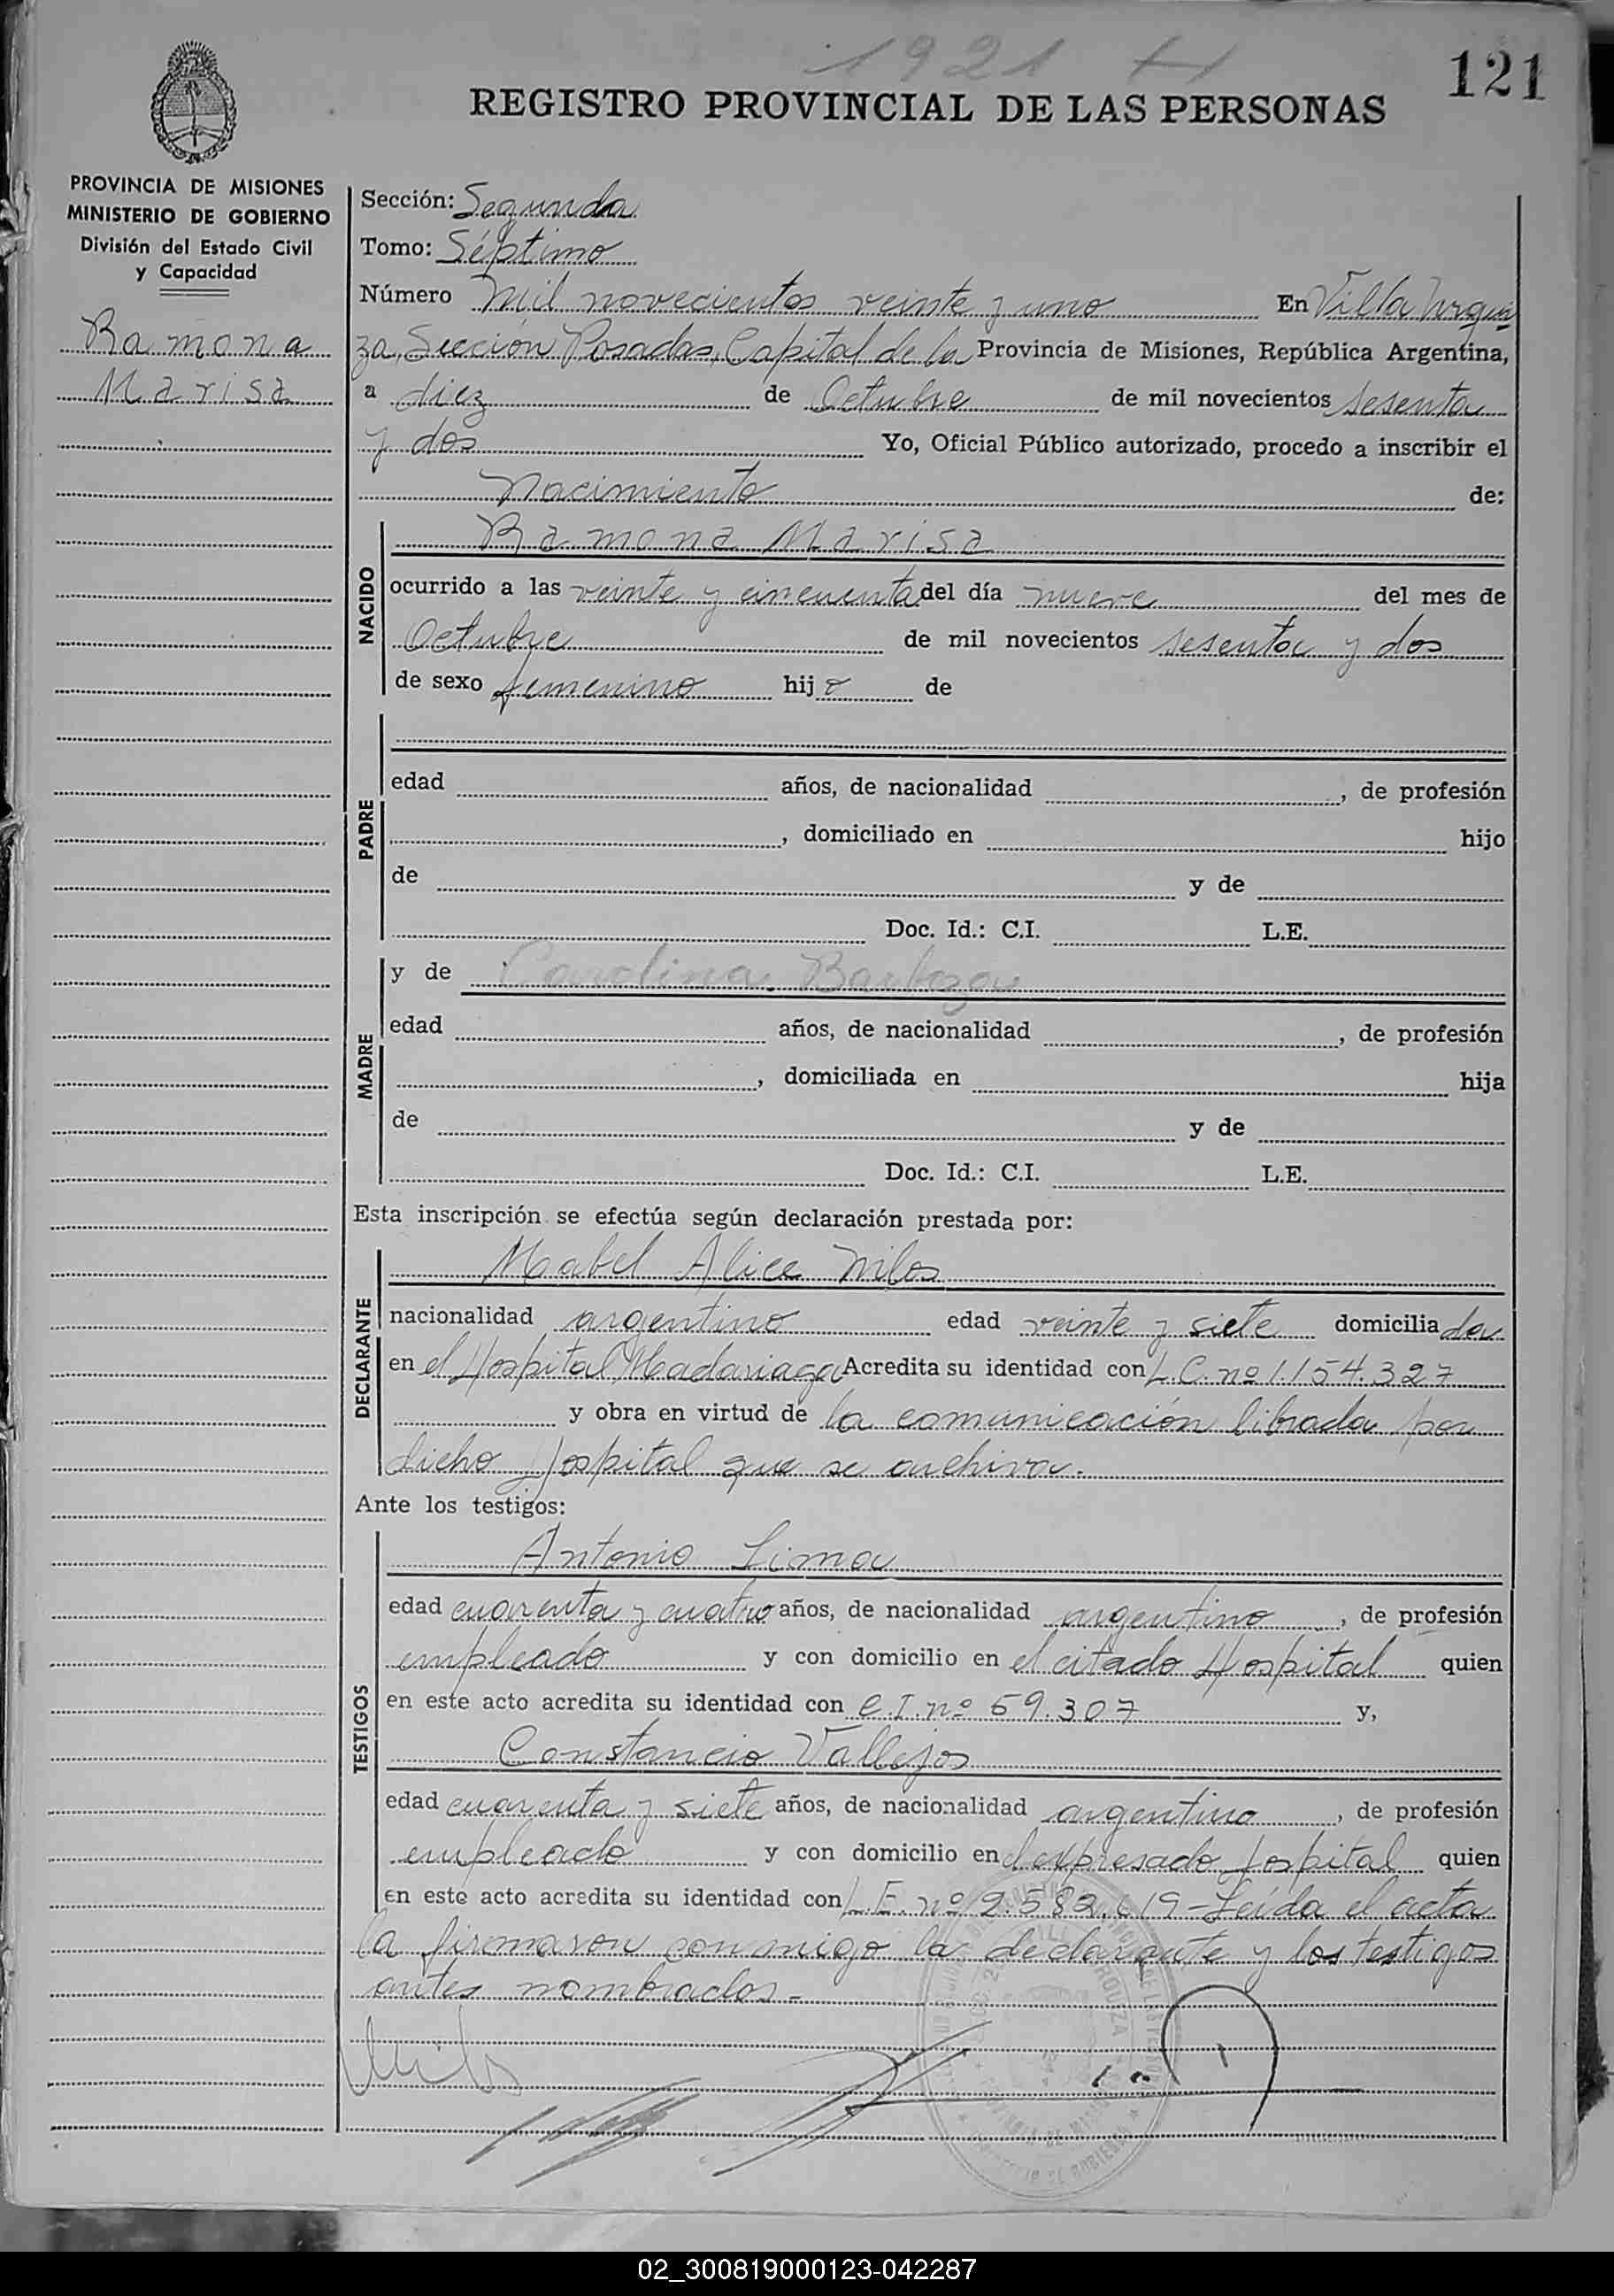 1921 H
121
REGISTRO PROVINCIAL DE LAS PERSONAS
PROVINCIA DE MISIONES
MINISTERIO DE GOBIERNO
División del Estado Civil
y Capacidad
Ramona
Marisa
Sección: Segunda
Tomo: Séptimo
Número mil novecientos veinte y uno En Villa Urqui
za, Sección Posadas, Capital de la Provincia de Misiones, República Argentina,
a diez de Octubre de mil novecientos sesenta
y dos Yo, Oficial Público autorizado, procedo a inscribir el
Nacimiento de:
NACIDO
Ramona Marisa
ocurrido a las veinte y cincuenta del día nueve del mes de
Octubre de mil novecientos sesenta y dos
de sexo femenino hij a de
PADRE
edad años, de nacionalidad , de profesión
, domiciliado en hijo
de y de
Doc. Id.: C.I. L.E.
MADRE
y de Carolina Barboza
edad años, de nacionalidad , de profesión
, domiciliada en hija
de y de
Doc. Id.: C.I. L.E.
Esta inscripción se efectúa según declaración prestada por:
DECLARANTE
Mabel Alice Milos
nacionalidad argentino edad veinte y siete domicilia da
en el Hospital Madariaga Acredita su identidad con L.C. nº 1.154.327
y obra en virtud de la comunicación librada por
dicho Hospital que se archiva.
Ante los testigos:
TESTIGOS
Antonio Lima
edad cuarenta y cuatro años, de nacionalidad argentino , de profesión
empleado y con domicilio en el citado Hospital quien
en este acto acredita su identidad con C.I. nº 59.307 y,
Constancio Vallejos
edad cuarenta y siete años, de nacionalidad argentino , de profesión
empleado y con domicilio en el expresado Hospital quien
en este acto acredita su identidad con L.E. nº 2.582.619 - Leída el acta
la firmaron conmigo la declarante y los testigos
antes nombrados.-
02_300819000123-042287